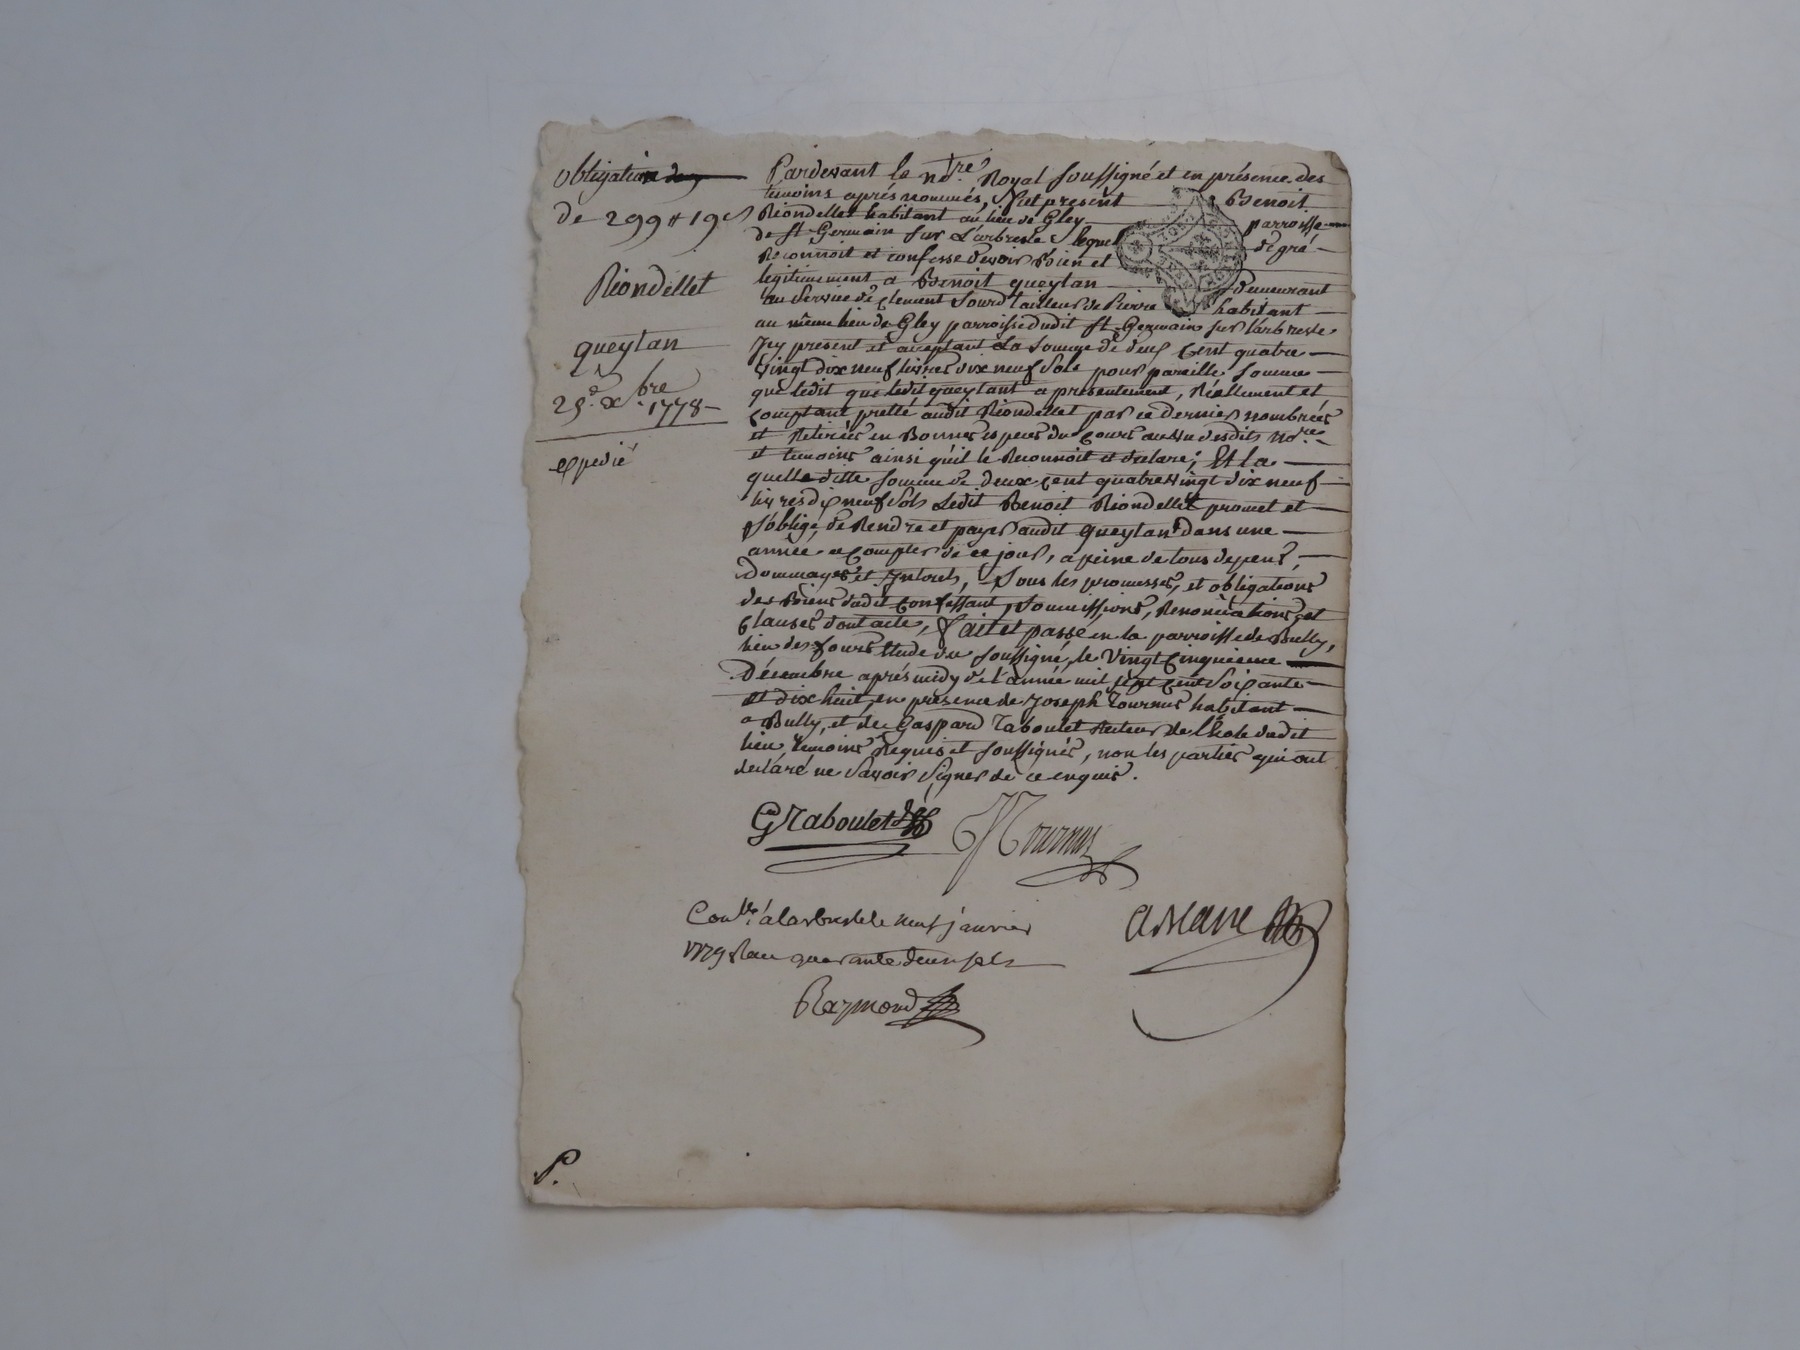 obligation
de 299 ₶ 19 s
Riondellet
queytan
25.e xbre 1778
expedié
Pardevant le no.re Royal soussigné et en présence des
temoins aprés nommés, fut présent Benoit
Riondellet habitant au lieu de Gley parroisse
de st Germain sur L'arbresle, lequel de gré
Reconnoit et confesse devoir bien et
legitimement a Benoit queytan demeurant
au service de Clement Sourd tailleur de Pierre habitant
au même lieu de Gley parroisse dudit st Germain sur larbresle
Icy présent et acceptant La somme de deux Cent quatre
Vingt dix neuf livres dix neuf sols pour pareille somme
que ledit que ledit queytant a présentement, Réellement et
Comptant pretté audit Riondellet par ce dernier nombrées
et Retirées en Bonnes especes du Cours au vu desdits no.re
et temoins ainsi qu'il le Reconnoit et declare; Et la
quelle ditte somme de deux Cent quatre vingt dix neuf
livres dix neuf sols Ledit Benoit Riondellet promet et
s'oblige, de Rendre et payer audit queytan dans une
année a Compter de ce jour, a peine de tous depens,
Dommages et Interets, sous les promesses, et obligations
des Biens dudit Confessant, soumissions, Renonciations, et
Clauses dont acte, Fait et passé en la parroisse de Bully,
lieu des fours Etude du soussigné, le Vingt Cinquieme
Décembre aprés midy de l'année mil sept cent soixante
et dix huit, en présence de Joseph Tournus habitant
a Bully, et de Gaspard Raboulet Recteur de l'Ecole dudit
lieu, temoins Requis et soussignés, non les parties qui ont
declaré ne savoir signer de ce enquis.
G Raboulet
J Tournus
Con.lé à larbresle le neuf janvier
1779 Reçu quarante deux sols
Raymond
P.